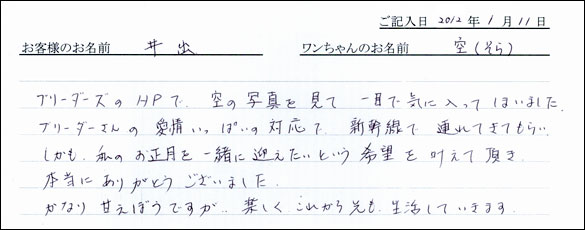 ご記入日 2012 年 1 月 11 日
お客様のお名前 井出 ワンちゃんのお名前 空(そら)
ブリーダーズのHPで、空の写真を見て 一目で気に入ってしまいました。
ブリーダーさんの愛情いっぱいの対応で、新幹線で連れてきてもらい、
しかも、私のお正月を一緒に迎えたいという希望を叶えて頂き、
本当にありがとうございました。
かなり甘えぼうですが、楽しくこれから先も、生活していきます。